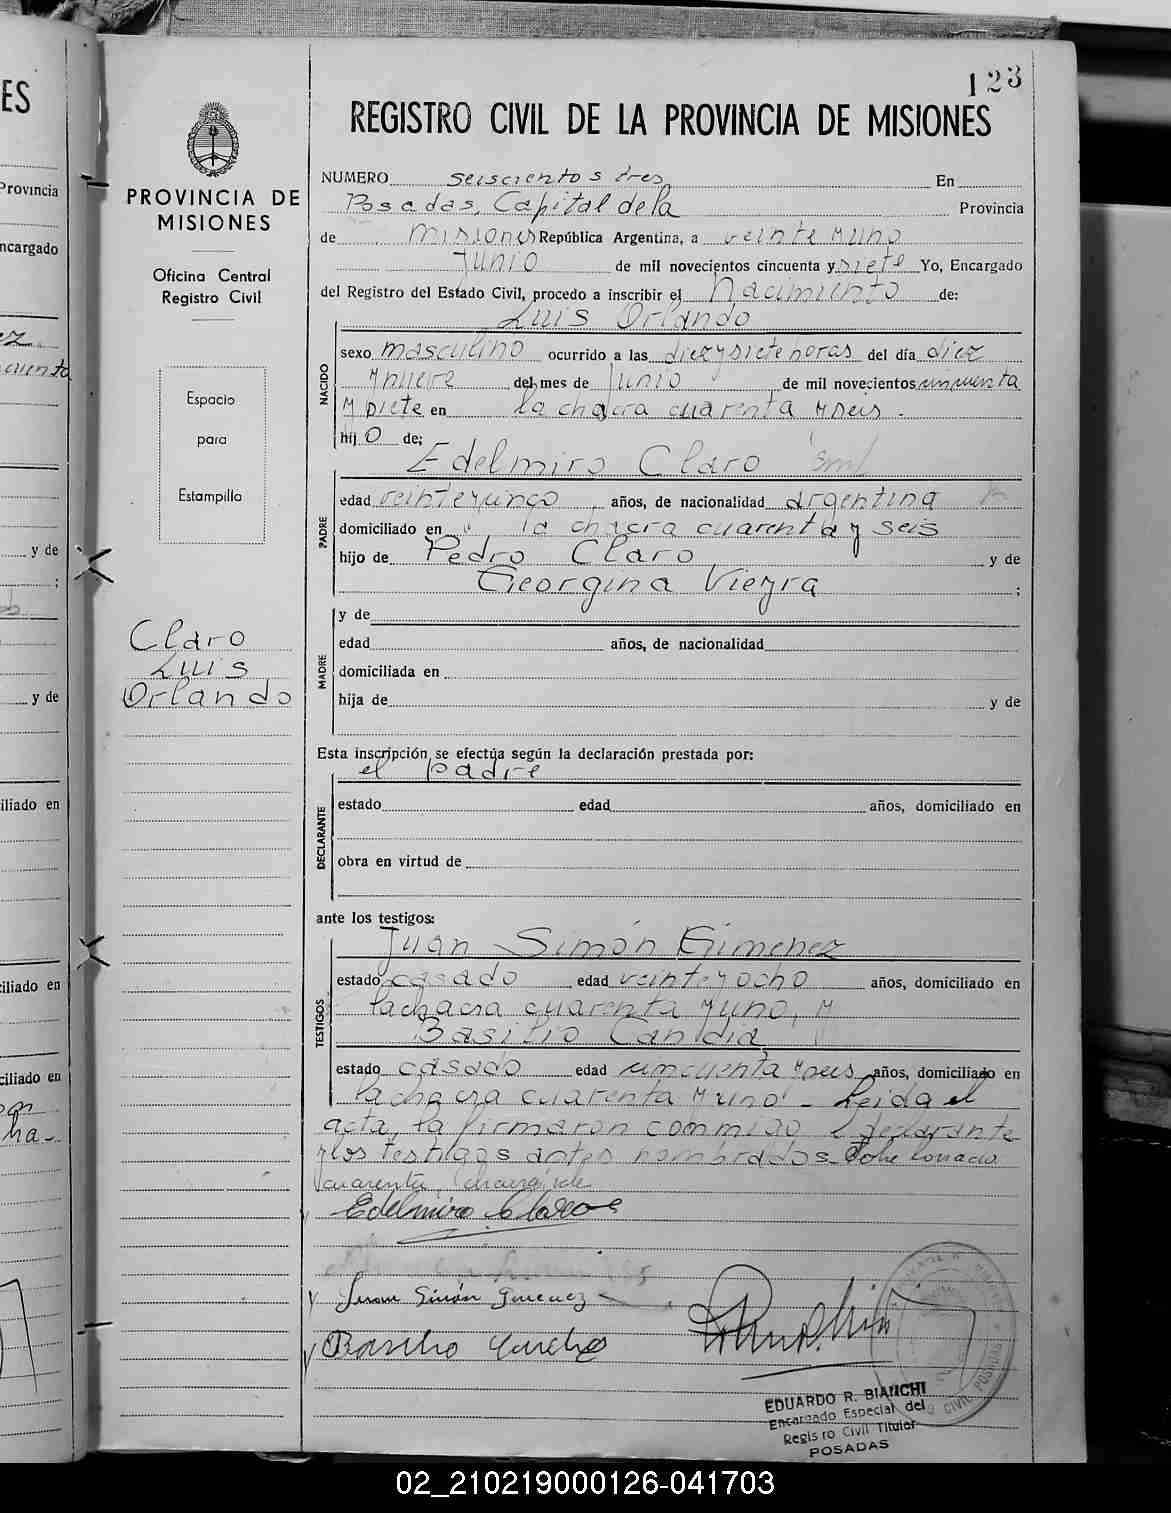 123
REGISTRO CIVIL DE LA PROVINCIA DE MISIONES
NUMERO seiscientos tres En
Posadas, Capital de la Provincia
de Misiones República Argentina, a veinte y uno
Junio de mil novecientos cincuenta y siete Yo, Encargado
del Registro del Estado Civil, procedo a inscribir el Nacimiento de:
Luis Orlando
NACIDO
sexo masculino ocurrido a las diez y siete horas del día diez
y nueve del mes de Junio de mil novecientos cincuenta
y siete en la chacra cuarenta y seis.
hijo de;
Edelmiro Claro
PADRE
edad veinte y cinco años, de nacionalidad argentina
domiciliado en la chacra cuarenta y seis
hijo de Pedro Claro y de
Georgina Vieyra ;
MADRE
y de
edad años, de nacionalidad
domiciliada en
hija de y de
Esta inscripción se efectúa según la declaración prestada por:
el padre
DECLARANTE
estado edad años, domiciliado en
obra en virtud de
ante los testigos:
Juan Simón Gimenez
TESTIGOS
estado casado edad veinte y ocho años, domiciliado en
la chacra cuarenta y uno, y
Basilio Candia,
estado casado edad cincuenta y seis años, domiciliado en
la chacra cuarenta y uno - Leida el
acta, la firmaron conmigo el declarante
y los testigos antes nombrados.
cuarenta,
Edelmiro Claro
Juan Simón Gimenez
Basilio
EDUARDO R. BIANCHI
Encargado Especial del
Registro Civil Titular
POSADAS
PROVINCIA DE
MISIONES
Oficina Central
Registro Civil
Espacio
para
Estampilla
Claro
Luis
Orlando
ES
Provincia
ncargado
y de
;
y de
iliado en
iliado en
ciliado en
02_210219000126-041703